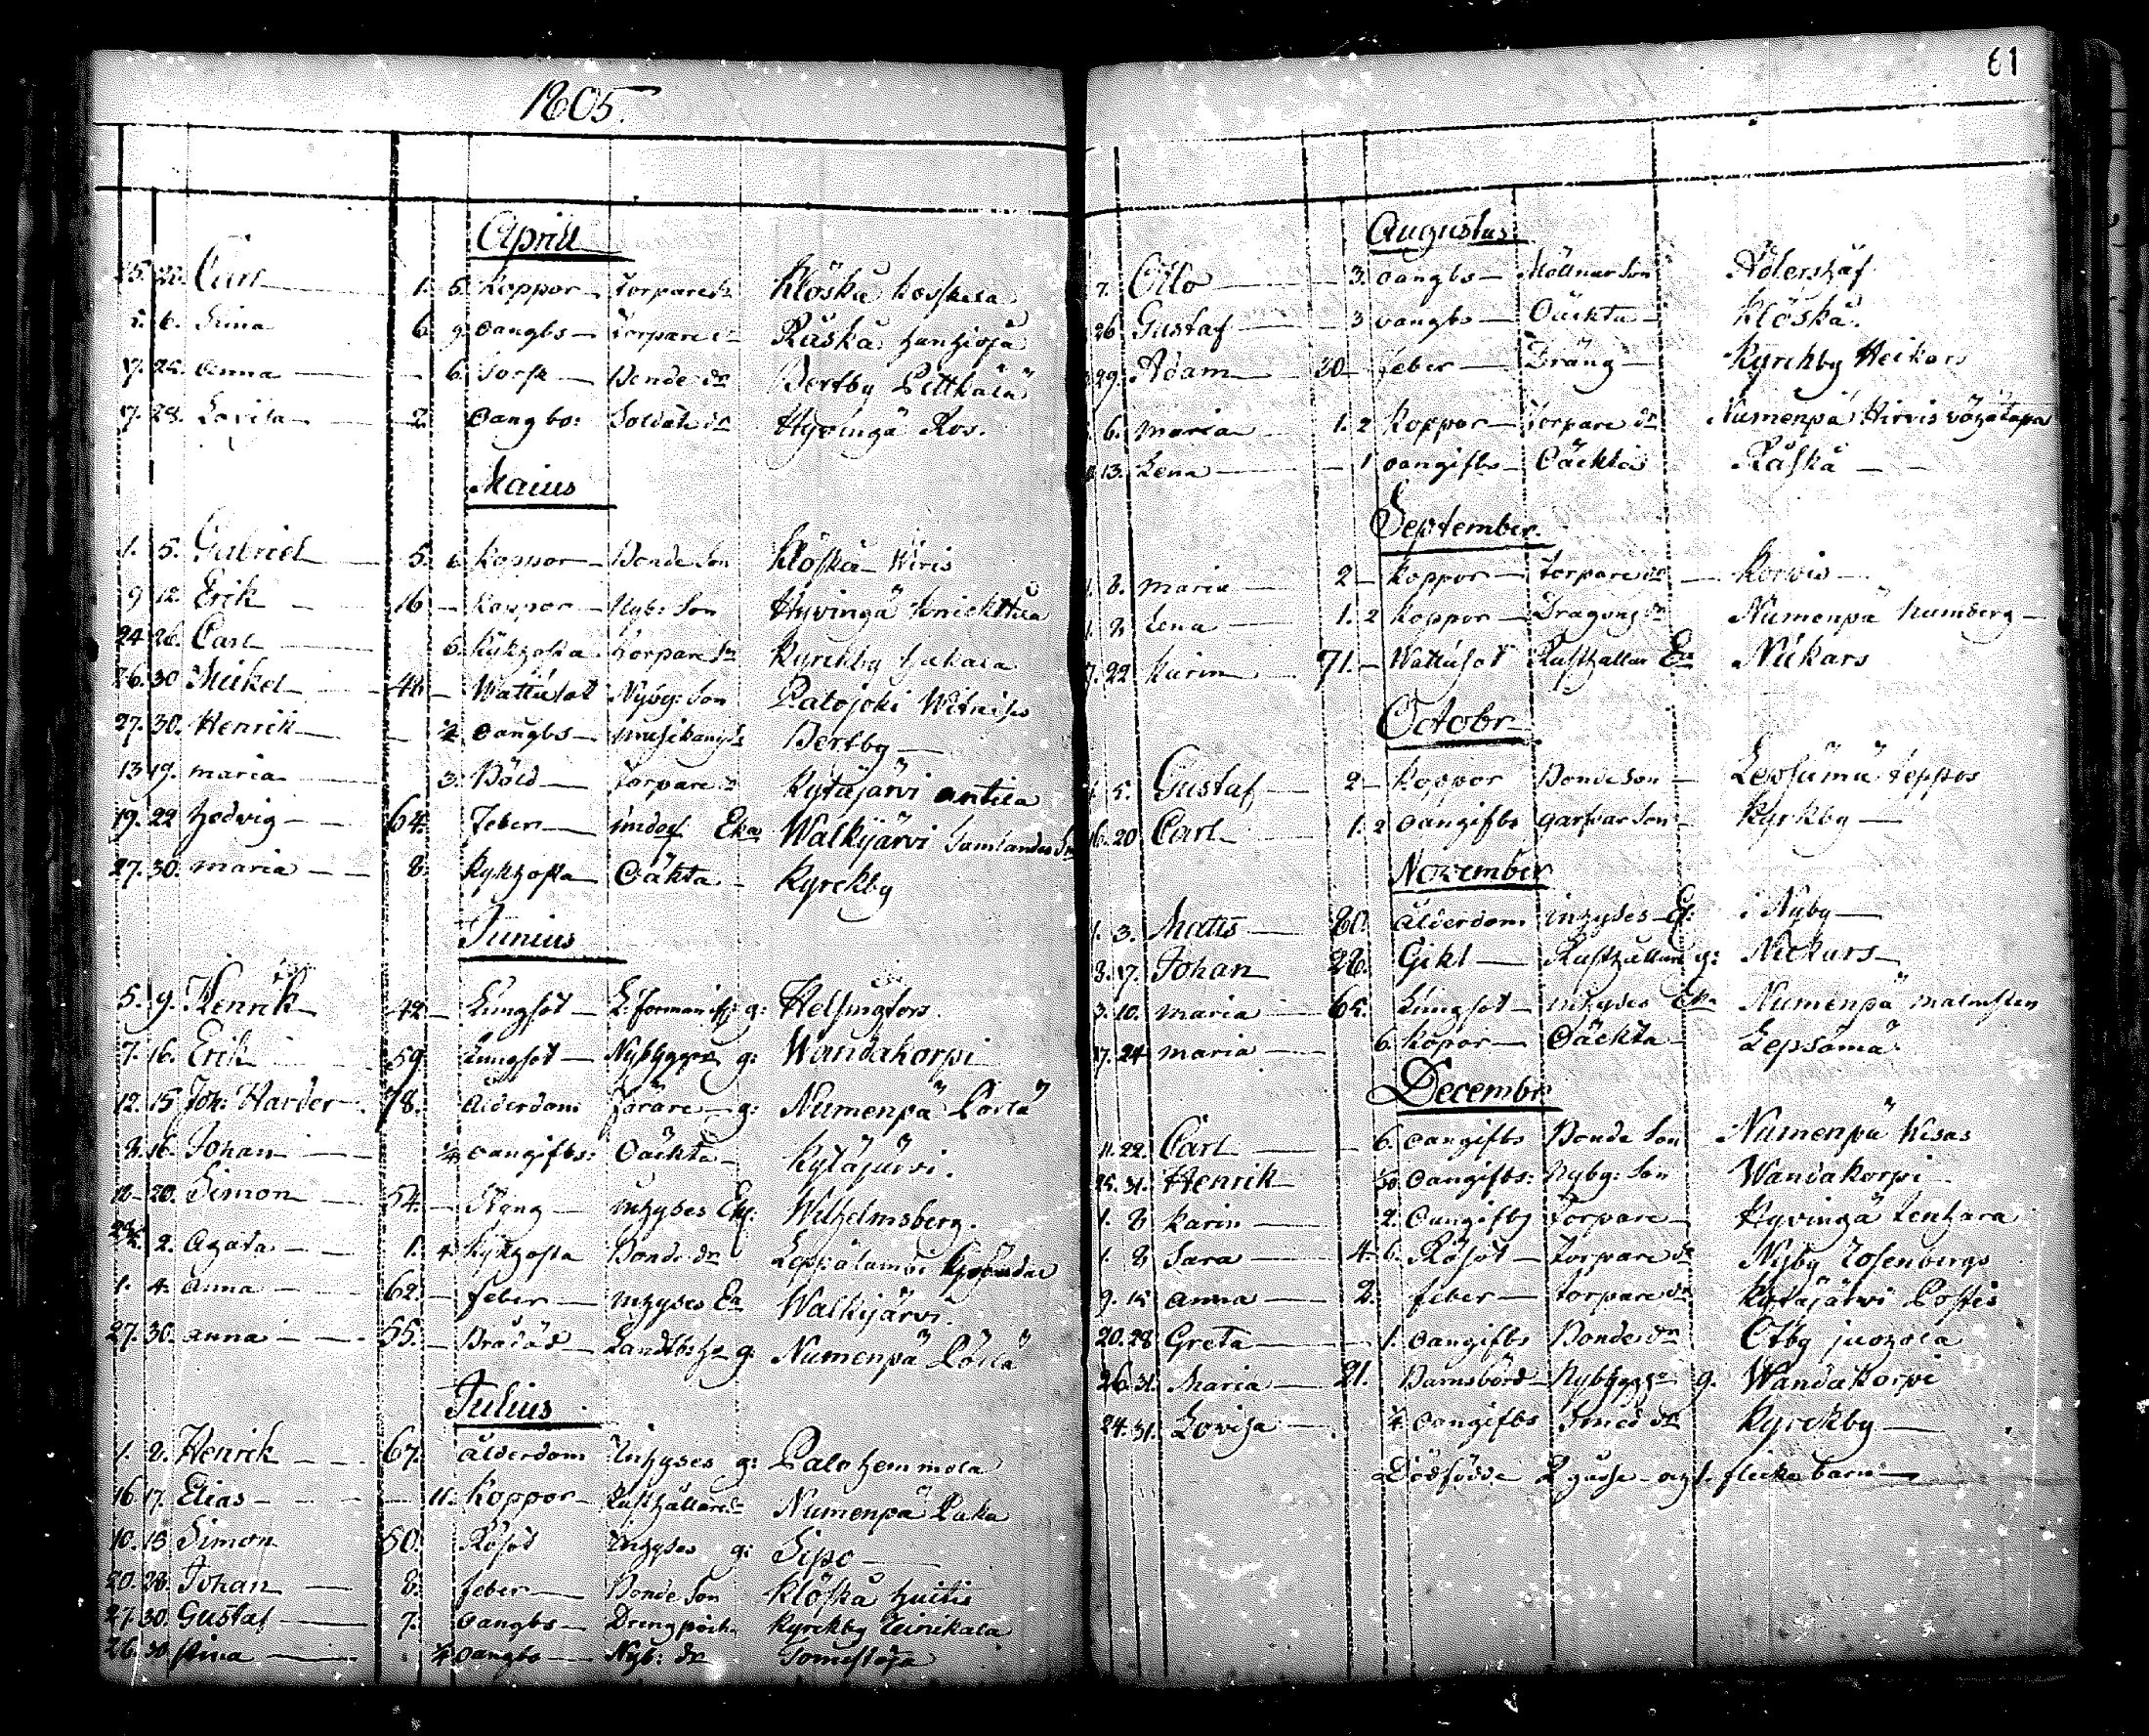 1805.
Aprill
25. 28. Carl 1. 5. Koppor Torpare Kloskå
5. 6. Stina 6 9. oangbs Torpare dr Råskå
7. 25. Anna 6. Torsk Bonde dr Pertby Pittkälä
17. 28. Lovisa 2. oangbs: Soldats dr Hyvingä Ros.
Maius
1. 5. Gabriel 5. 6 Koppor Bonde Son Klöskå Wiris
9 12. Erik 16 Koppor Nyb: Son Hyvingä Knichttila
24 26. Carl 6. Kykhosta Torpare Sn Kyrckby Jakala
26. 30 Mikel 44 Wattusot Nybg: Son Palojoki
27. 30. Henrik 1/2 oangbs Musikant Pertby
13 19. Maria 3. Böld Torpare dr Kytäjärvi Antila
19. 22 Hedvig 64. Feber Eka Walkjärvi
27. 30. Maria 8. Kykhosta Oäkta Kyrckby
Junius
5. 9. Henrik 42 Lungsot g: Helsingfors
7. 16. Erik 59 Lungsot Nybygger g: Wandakorpi
12. 15 Joh: Harder 78. ålderdom Färare g: Numenpä Pårlä
8. 16. Johan oangifts: Oäckta Kytäjärvi.
18 20. Simon 54. Hång Inhyses Ekg: Wilhelmsberg.
2. Agata 1. 4 Kykhosta Bonde dr Leppälambi
1. 4. Anna 62. feber Inhyses Ea Walkjärvi.
27. 30. Anna 55. Brådöd g: Numenpä Pårlä
Julius
1. 2. Henrik 67. ålderdom Inhyses g: Palohemmola
16 17. Elias 11. Koppor Rusthållare Sn Numenpä Paka
10. 13 Simon 50. Rösot Inhyses g: Sipo
20. 28. Johan 8. feber Bonde Son Klöskå Huitis
27. 30. Gustaf 7. oangbs Drengpoik Kyrckby Heinikala
26. 30 Stina 1/2 oangbs Nyb: dr
61
Augustus
7. Otto 3. oangbs Möllnar Son Adlershäf
26 Gustaf 3 oangbs Oäckta Klöskå
29. Adam 30 feber Dräng Kyrckby Heikars
6. Maria 1. 2 Koppor Torpare dr Numenpä
13. Lena 1 oangifts Oäckta Råskå
September
1. 8. Maria 2 Koppor Torpare dr Korvis
1. 8 Lena 1. 2 Koppor Dragong dr Numenpä Humberg
7. 22 Karin 71. Wattusot Rusthållar Ea Nickars
Octobr
5. Gustaf 2 Koppor Bonde Son Lepsämä Seppos
16. 20 Carl 1. 2 oangifts garfvar Son Kyrkby
November
1. 3. Matts 80. ålderdom Inhyses Ek: i Nyby
3. 17. Johan 28. Gikt Rusthållare g: Nickars
3. 10. Maria 65. Lungsot Inhyses Eka Numenpä Malmsten
17. 24 Maria 6. Kopor Oäckta Lepsämä
Decembr
11. 22. Carl 6. oangifts Bonde Son Numenpä Kisas
25. 31. Henrik oangifts: Nybg: Son Wandakorpi
1. 8 Karin 2. oangifts Torpare Hyvingä Lenhara
1. 8 Sara 4. 6. Rösot Torpare dr Nyby Rosenbergs
9. 15 Anna 2. feber Torpare dr Kytäjärwi Postis
20. 28 Greta 1. oangifts Bonde dr Otby Juohola
26. 31. Maria 21. Barnsbörd Nybygg g. Wandakorpi
24. 31. Lovisa oangifts Smed dr Kyrckby
Dödfödde 2 gåsse och 1. flicke barn